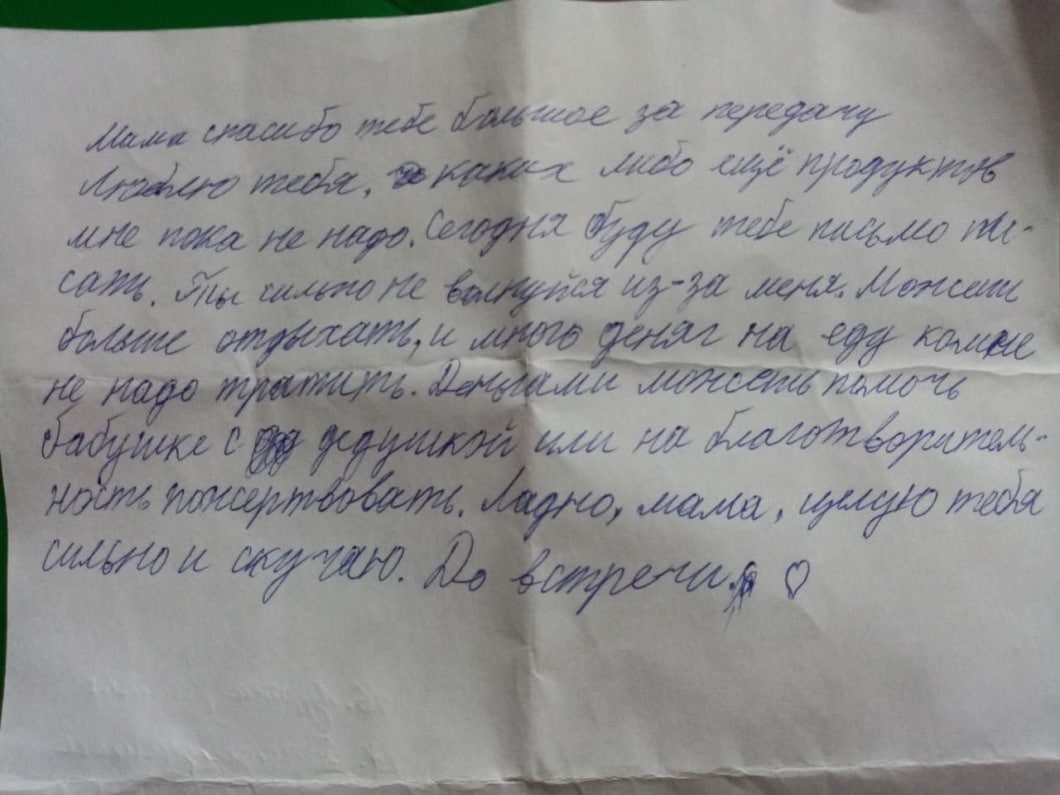 Мама спасибо тебе большое за передачу
Люблю тебя, каких либо ещё продуктов
мне пока не надо. Сегодня буду тебе письмо пи-
сать. Ты сильно не волнуйся из-за меня. Можешь
больше отдыхать, и много деняг на еду комне
не надо тратить. Деньгами можешь помочь
бабушке с дедушкой или на благотворитель-
ность пожертвовать. Ладно, мама, целую тебя
сильно и скучаю. До встречи. ♡